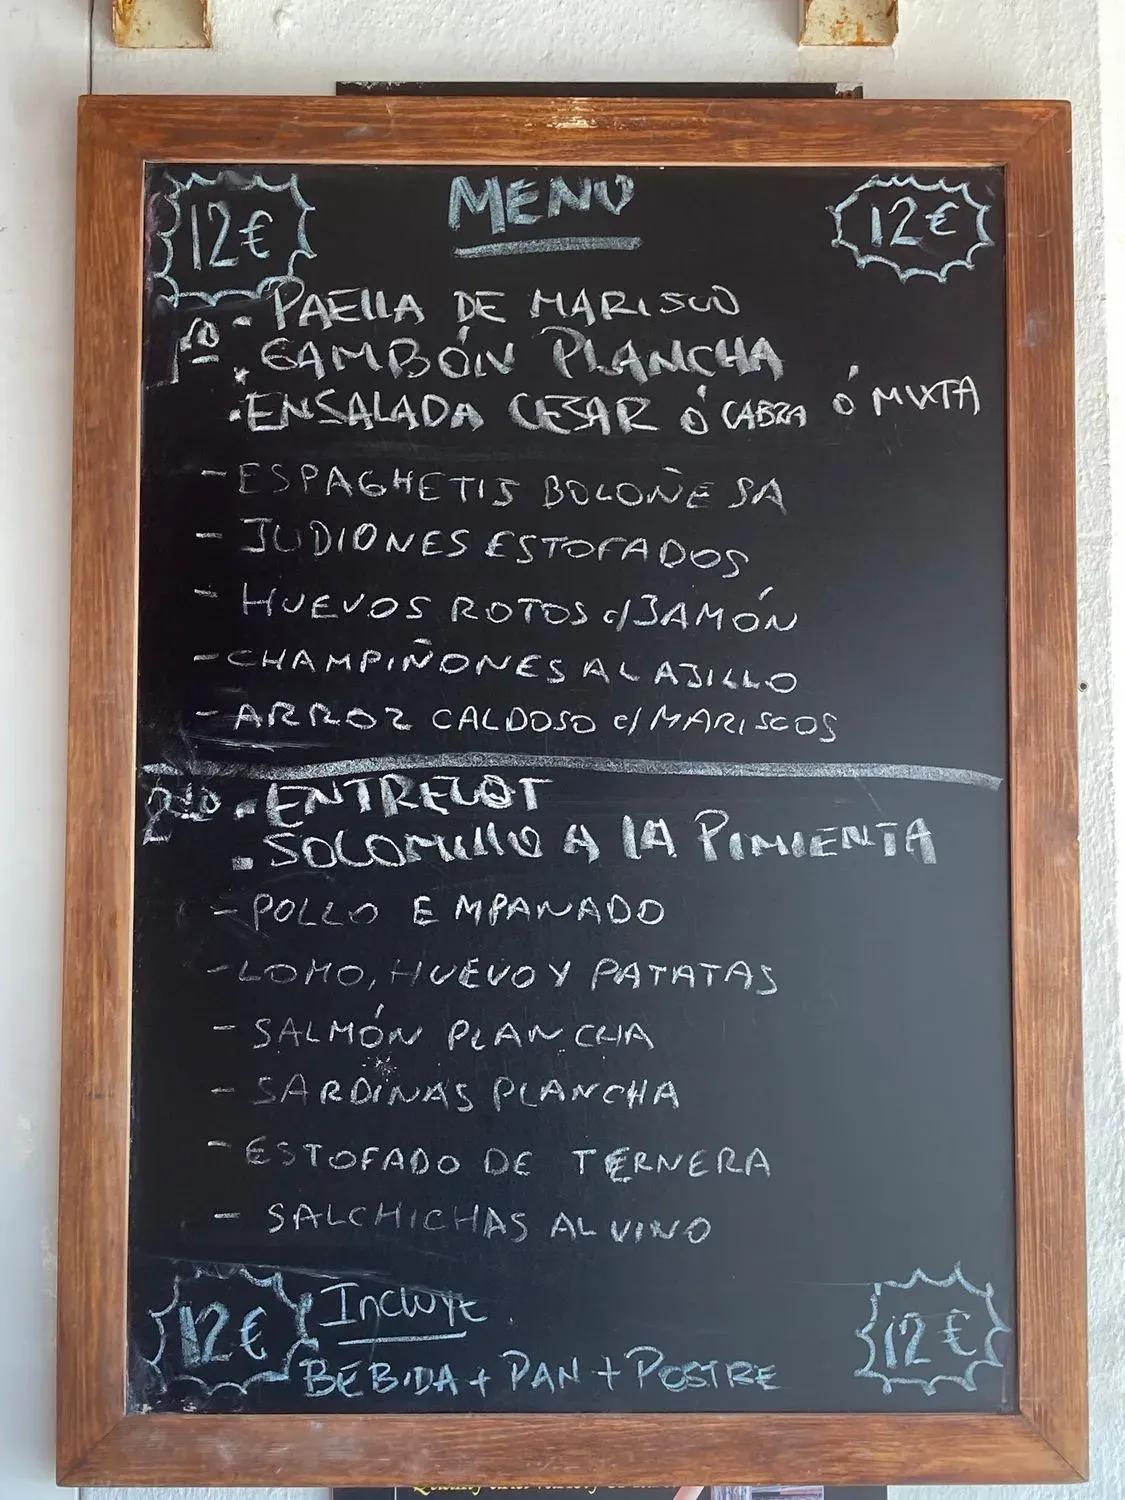 12€ MENU 12€
1º - PAELLA DE MARISCO
. GAMBÓN PLANCHA
. ENSALADA CESAR Ó CABRA Ó MIXTA
- ESPAGHETIS BOLOÑESA
- JUDIONES ESTOFADOS
- HUEVOS ROTOS c/JAMÓN
- CHAMPIÑONES AL AJILLO
- ARROZ CALDOSO c/MARISCOS
. ENTRECOT
. SOLOMILLO A LA PIMIENTA
- POLLO EMPANADO
- LOMO, HUEVO Y PATATAS
- SALMÓN PLANCHA
- SARDINAS PLANCHA
- ESTOFADO DE TERNERA
- SALCHICHAS AL VINO
12€ INCLUYE 12€
BEBIDA + PAN + POSTRE